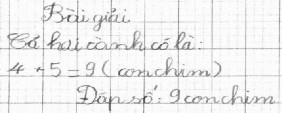 Bài giải
Cả hai cành có là:
4 + 5 = 9 (con chim)
Đáp số: 9 con chim